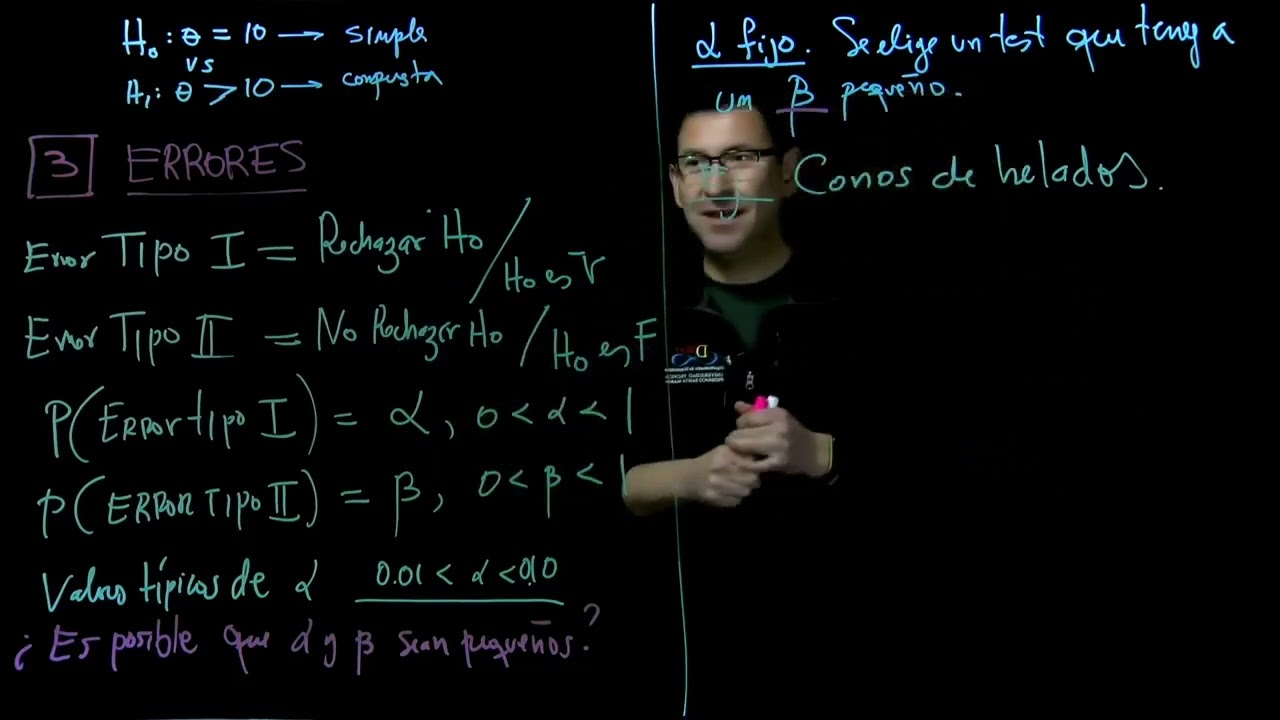 H₀ : θ = 10 → simple
vs
H₁ : θ > 10 → compusta
3 ERRORES
Error TIPO I = Rechazar Ho / Ho es V
Error TIPO II = No Rechazar Ho / Ho es F
P(ERROR tipo I) = α, 0 < α < 1
P(ERROR TIPO II) = β, 0 < β < 1
Valores típicos de α 0.01 < α < 0.10
¿Es posible que α y β sean pequeños?
α fijo. Se elige un test que tenga
un β pequeño.
Conos de helados.